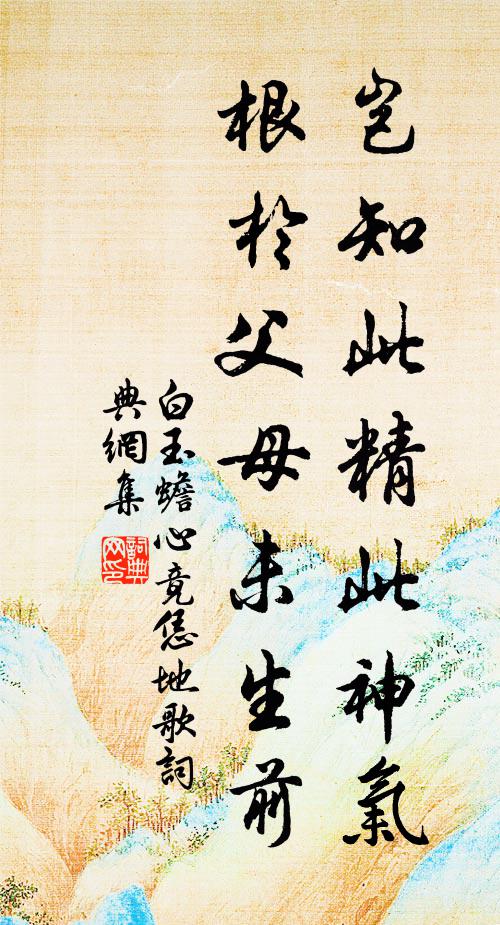 豈知此精此神氣
根於父母未生前
白玉蟾心竟恁地歌詞
典網集
詞典
网印